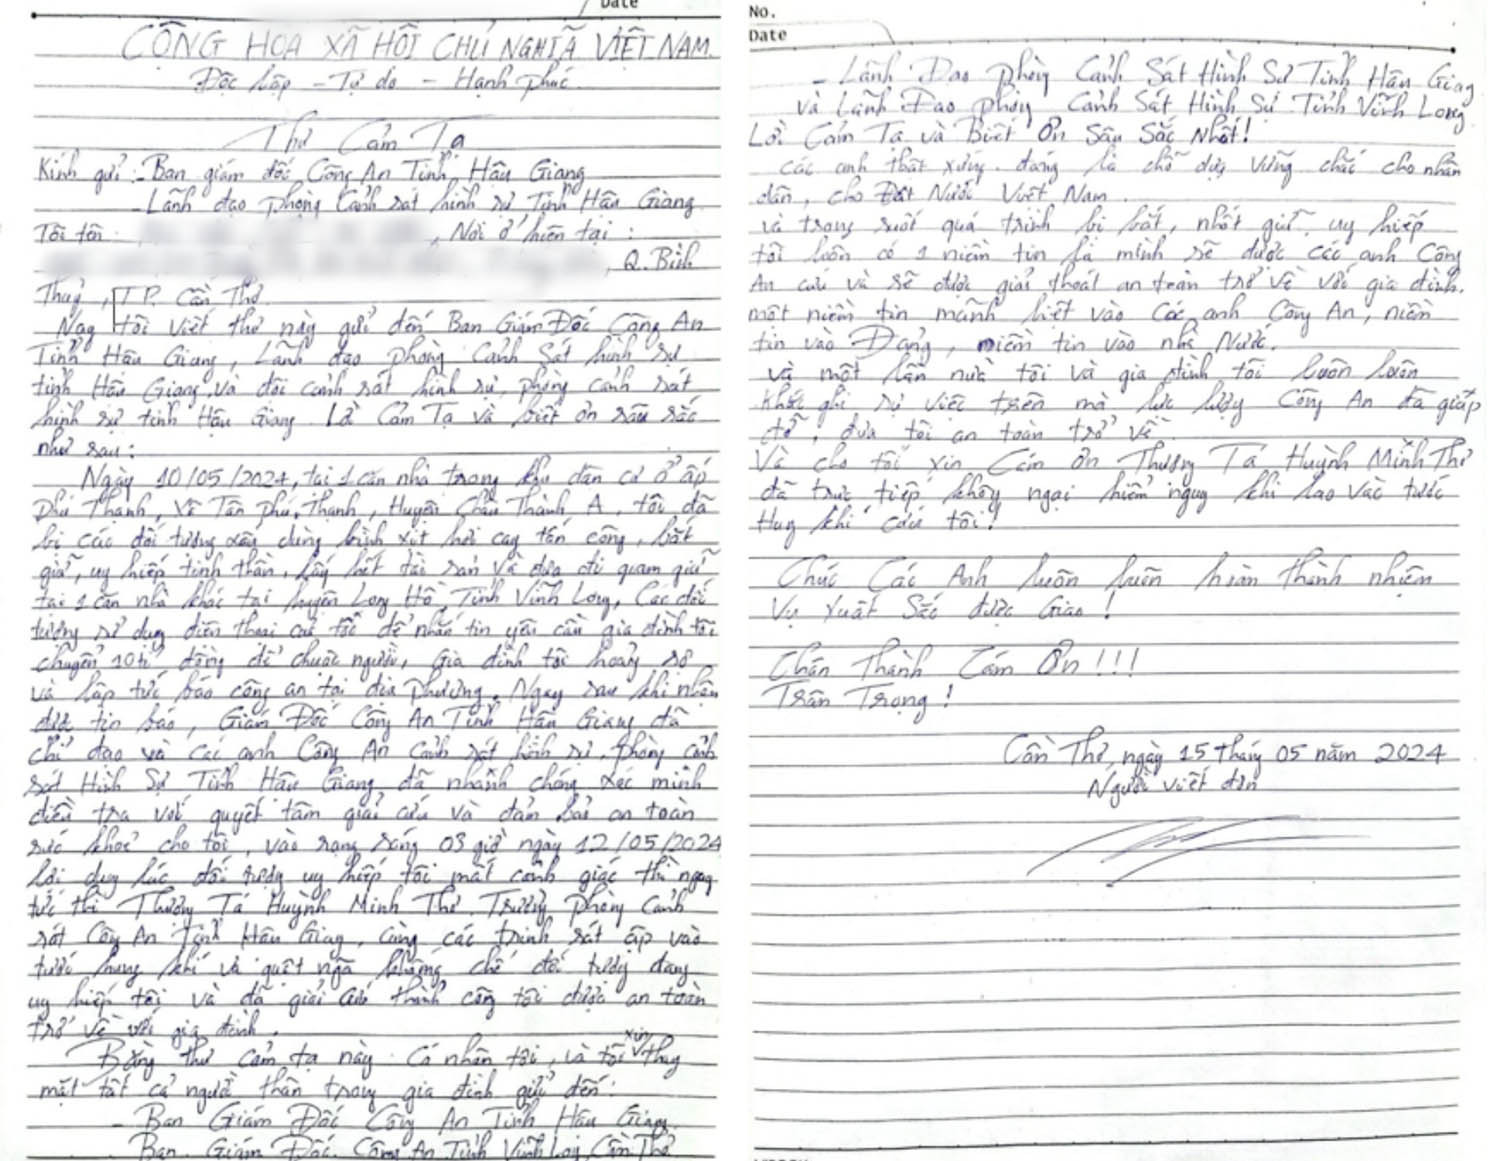 Date
CỘNG HOA XÃ HỘI CHỦ NGHĨA VIỆT NAM
Độc lập - Tự do - Hạnh phúc
Thư Cảm Tạ
Kính gửi: - Ban giám đốc Công An Tỉnh Hậu Giang
- Lãnh đạo phòng Cảnh sát hình sự Tỉnh Hậu Giang
Tôi tên , Nơi ở hiện tại :
, Q. Bình
Thuỷ, TP. Cần Thơ
Nay tôi viết thư này gửi đến Ban Giám Đốc Công An
Tỉnh Hậu Giang, Lãnh đạo phòng Cảnh Sát hình sự
tỉnh Hậu Giang, và đội cảnh sát hình sự, phòng cảnh sát
hình sự tỉnh Hậu Giang. Lời Cảm Tạ và biết ơn sâu sắc
như sau :
Ngày 10/05/2024, tại 1 căn nhà trong khu dân cư ở ấp
Phú Thạnh, Xã Tân Phú Thạnh, Huyện Châu Thành A, tôi đã
bị các đối tượng dùng bình xịt hơi cay tấn công, bắt
giữ, uy hiếp tinh thần, lấy hết tài sản và đưa đi giam giữ
tại 1 căn nhà khác tại huyện Long Hồ, Tỉnh Vĩnh Long, Các đối
tượng sử dụng điện thoại của tôi để nhắn tin yêu cầu gia đình tôi
chuyển 10 tỉ đồng để chuộc người, Gia đình tôi hoảng sợ
và lập tức báo công an tại địa phương. Ngay sau khi nhận
được tin báo, Giám Đốc Công An Tỉnh Hậu Giang đã
chỉ đạo và các anh Công An cảnh sát hình sự, phòng cảnh
sát Hình Sự Tỉnh Hậu Giang đã nhanh chóng xác minh
điều tra với quyết tâm giải cứu và đảm bảo an toàn
sức khoẻ cho tôi, vào rạng sáng 03 giờ ngày 12/05/2024
lợi dụng lúc đối tượng uy hiếp tôi mất cảnh giác thì ngay
tức thì Thượng Tá Huỳnh Minh Thơ Trưởng phòng Cảnh
sát Công An Tỉnh Hậu Giang, cùng các trinh sát ập vào
tước hung khí và quật ngã khống chế đối tượng đang
uy hiếp tôi và đã giải cứu thành công tôi được an toàn
trở về với gia đình.
Bằng thư cảm tạ này. Cá nhân tôi, và tôi xin thay
mặt tất cả người thân trong gia đình gửi đến:
- Ban Giám Đốc Công An Tỉnh Hậu Giang
Ban Giám Đốc Công An Tỉnh Vĩnh Long, Cần Thơ
No.
Date
- Lãnh Đạo Phòng Cảnh Sát Hình Sự Tỉnh Hậu Giang
và Lãnh Đạo phòng Cảnh Sát Hình Sự Tỉnh Vĩnh Long
Lời Cảm Tạ và Biết Ơn Sâu Sắc Nhất!
Các anh thật xứng đáng là chỗ dựa vững chắc cho nhân
dân, cho Đất Nước Việt Nam.
và trong suốt quá trình bị bắt, nhốt giữ, uy hiếp
tôi luôn có 1 niềm tin là mình sẽ được các anh Công
An cứu và sẽ được giải thoát an toàn trở về với gia đình.
một niềm tin mãnh liệt vào các anh Công An, niềm
tin vào Đảng, niềm tin vào nhà Nước.
và một lần nữa tôi và gia đình tôi luôn luôn
khắc ghi sự việc trên mà lực lượng Công An đã giúp
đỡ, đưa tôi an toàn trở về
Và cho tôi xin Cám ơn Thượng Tá Huỳnh Minh Thơ
đã trực tiếp không ngại hiểm nguy khi lao vào tước
Hung khí cứu tôi!
Chúc Các Anh luôn luôn hoàn thành nhiệm
vụ xuất Sắc được Giao !
Chân Thành Cám Ơn !!!
Trân Trọng !
Cần Thơ, ngày 15 tháng 05 năm 2024
Người viết đơn